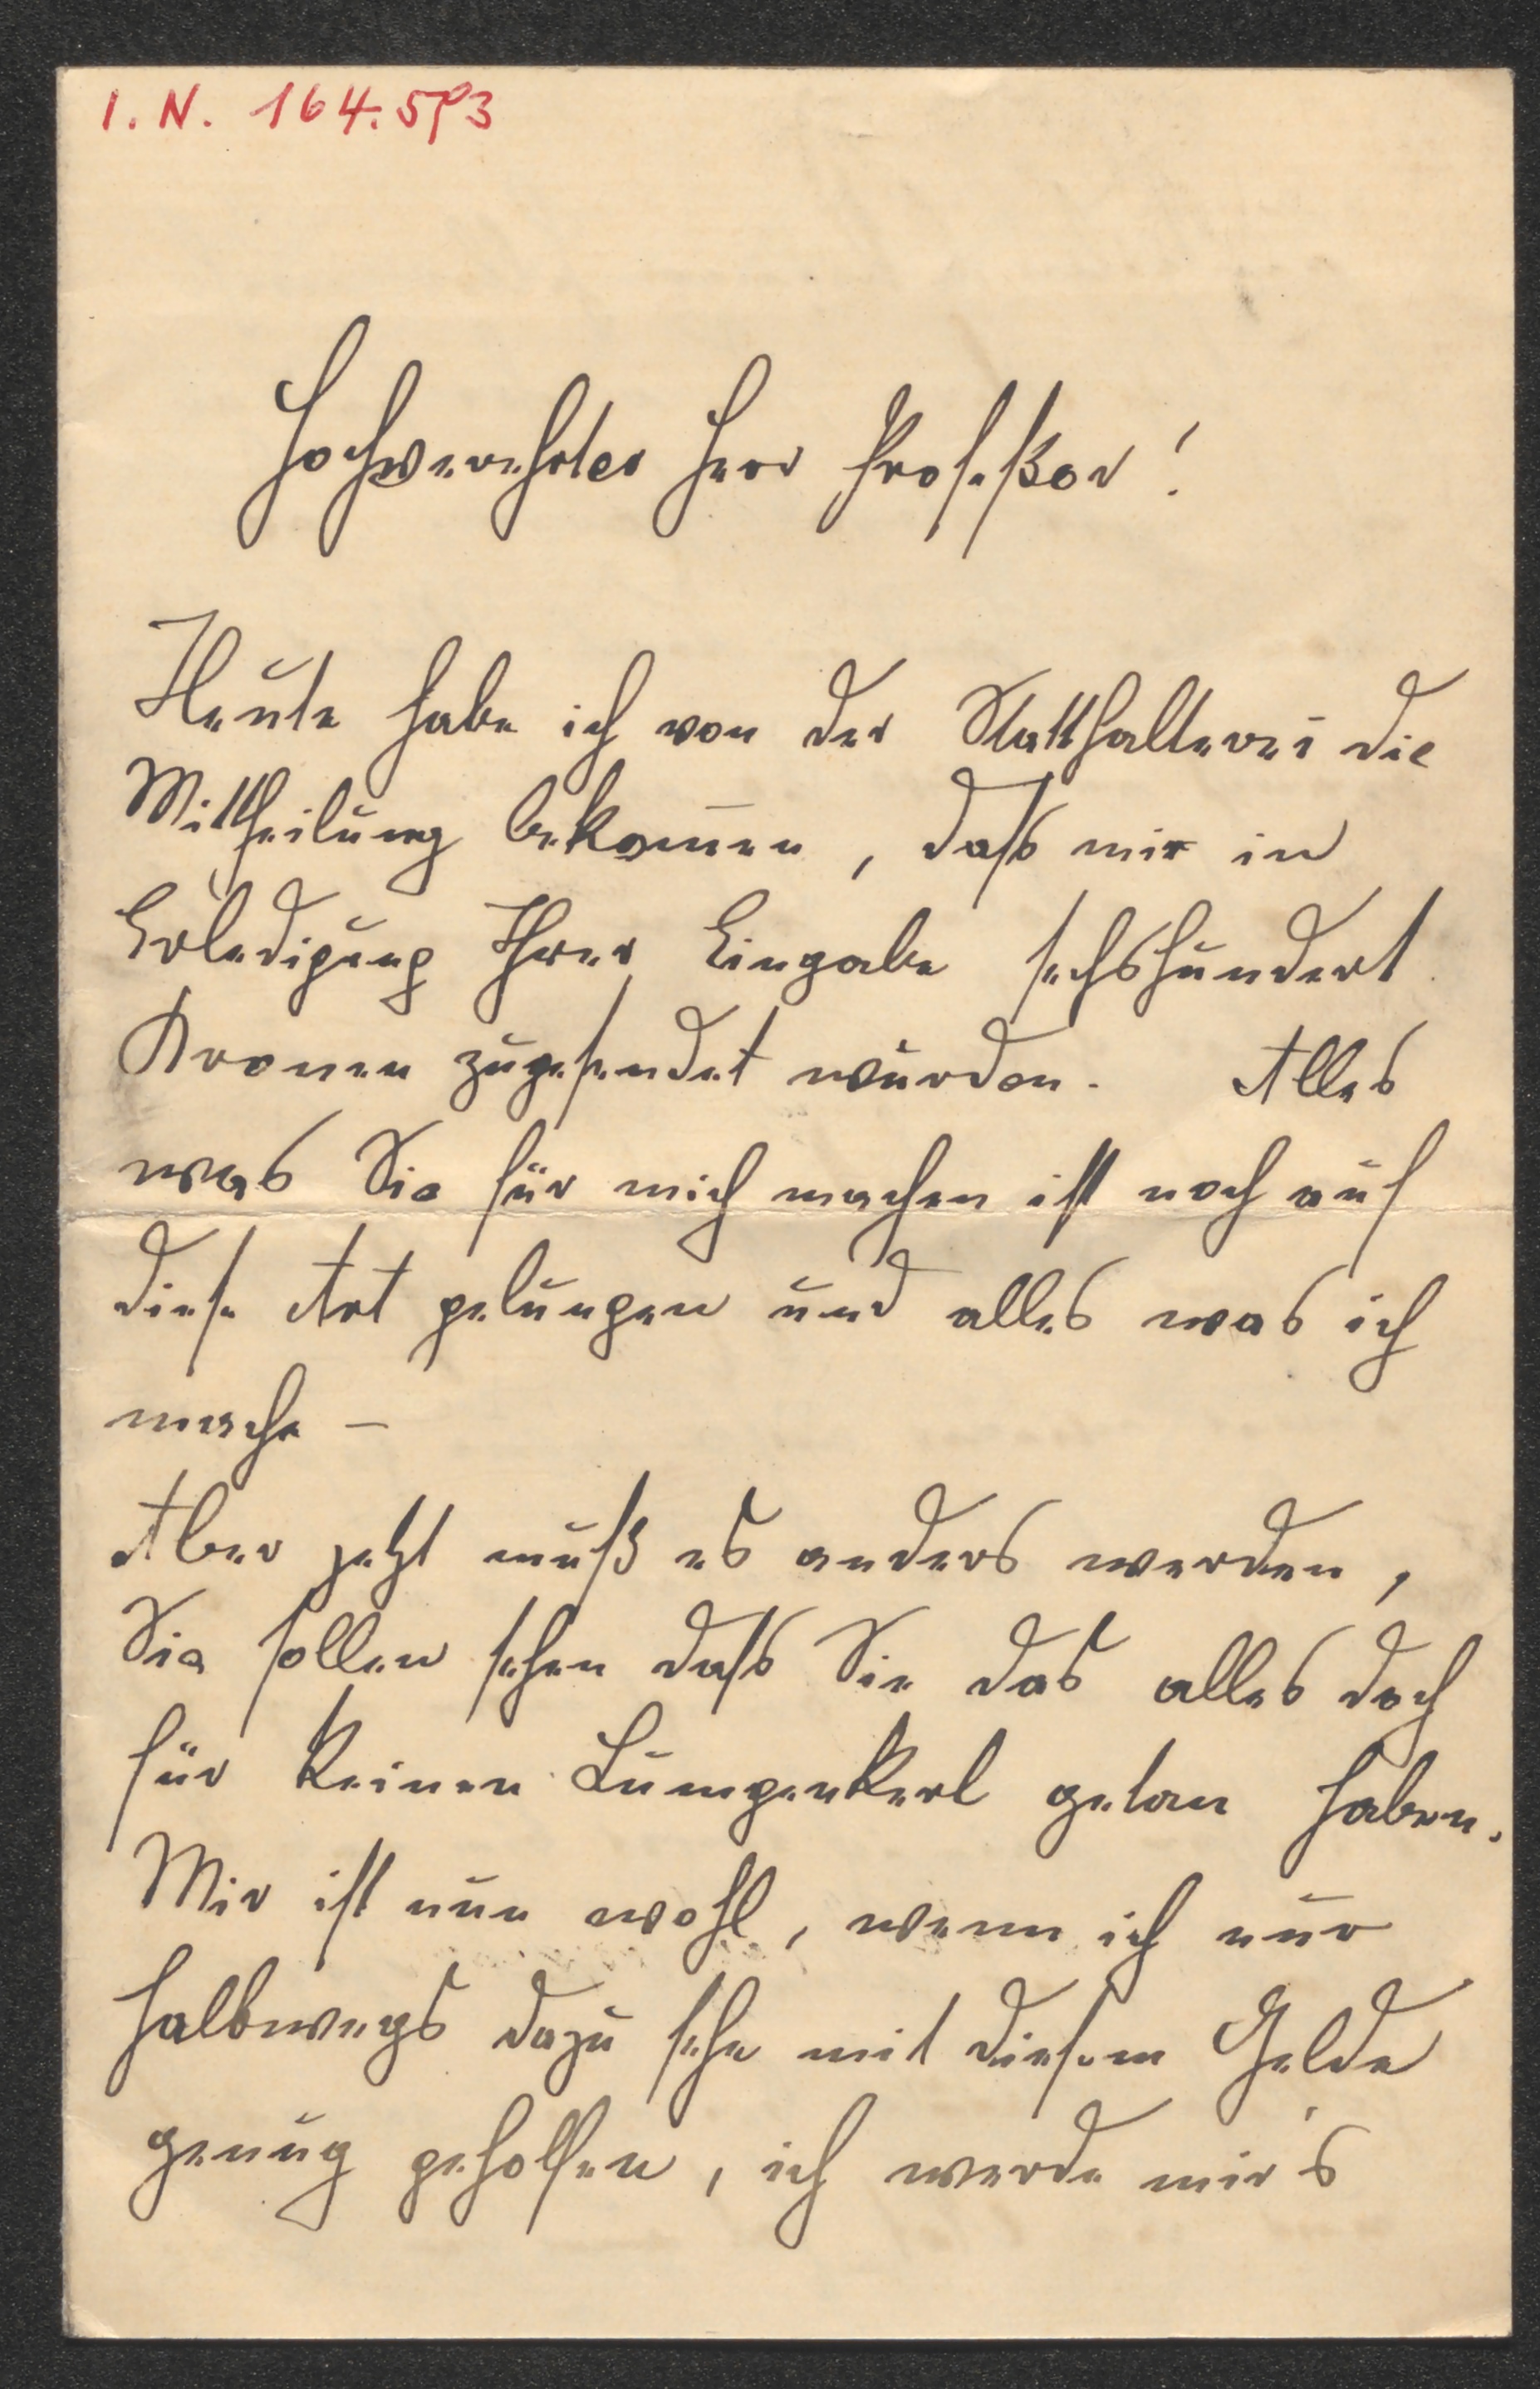 I. N. 164.593
Hochverehrter Herr Profeßor!
Heute habe ich von der Statthalterei die
Mittheilung bekom̅en, dass mir in
Erledigung Ihrer Eingabe sechshundert
Kronen zugesendet wurden. Alles
was Sie für mich machen ist noch auf
diese Art gelungen und alles was ich
mache —
Aber jetzt muß es anders werden,
Sie sollen sehen dass Sie das alles doch
für keinen Lumpenkerl getan haben.
Mir ist nun wohl, wenn ich nur
halbwegs dazu sehe mit diesem Gelde
genug geholfen, ich werde mir's